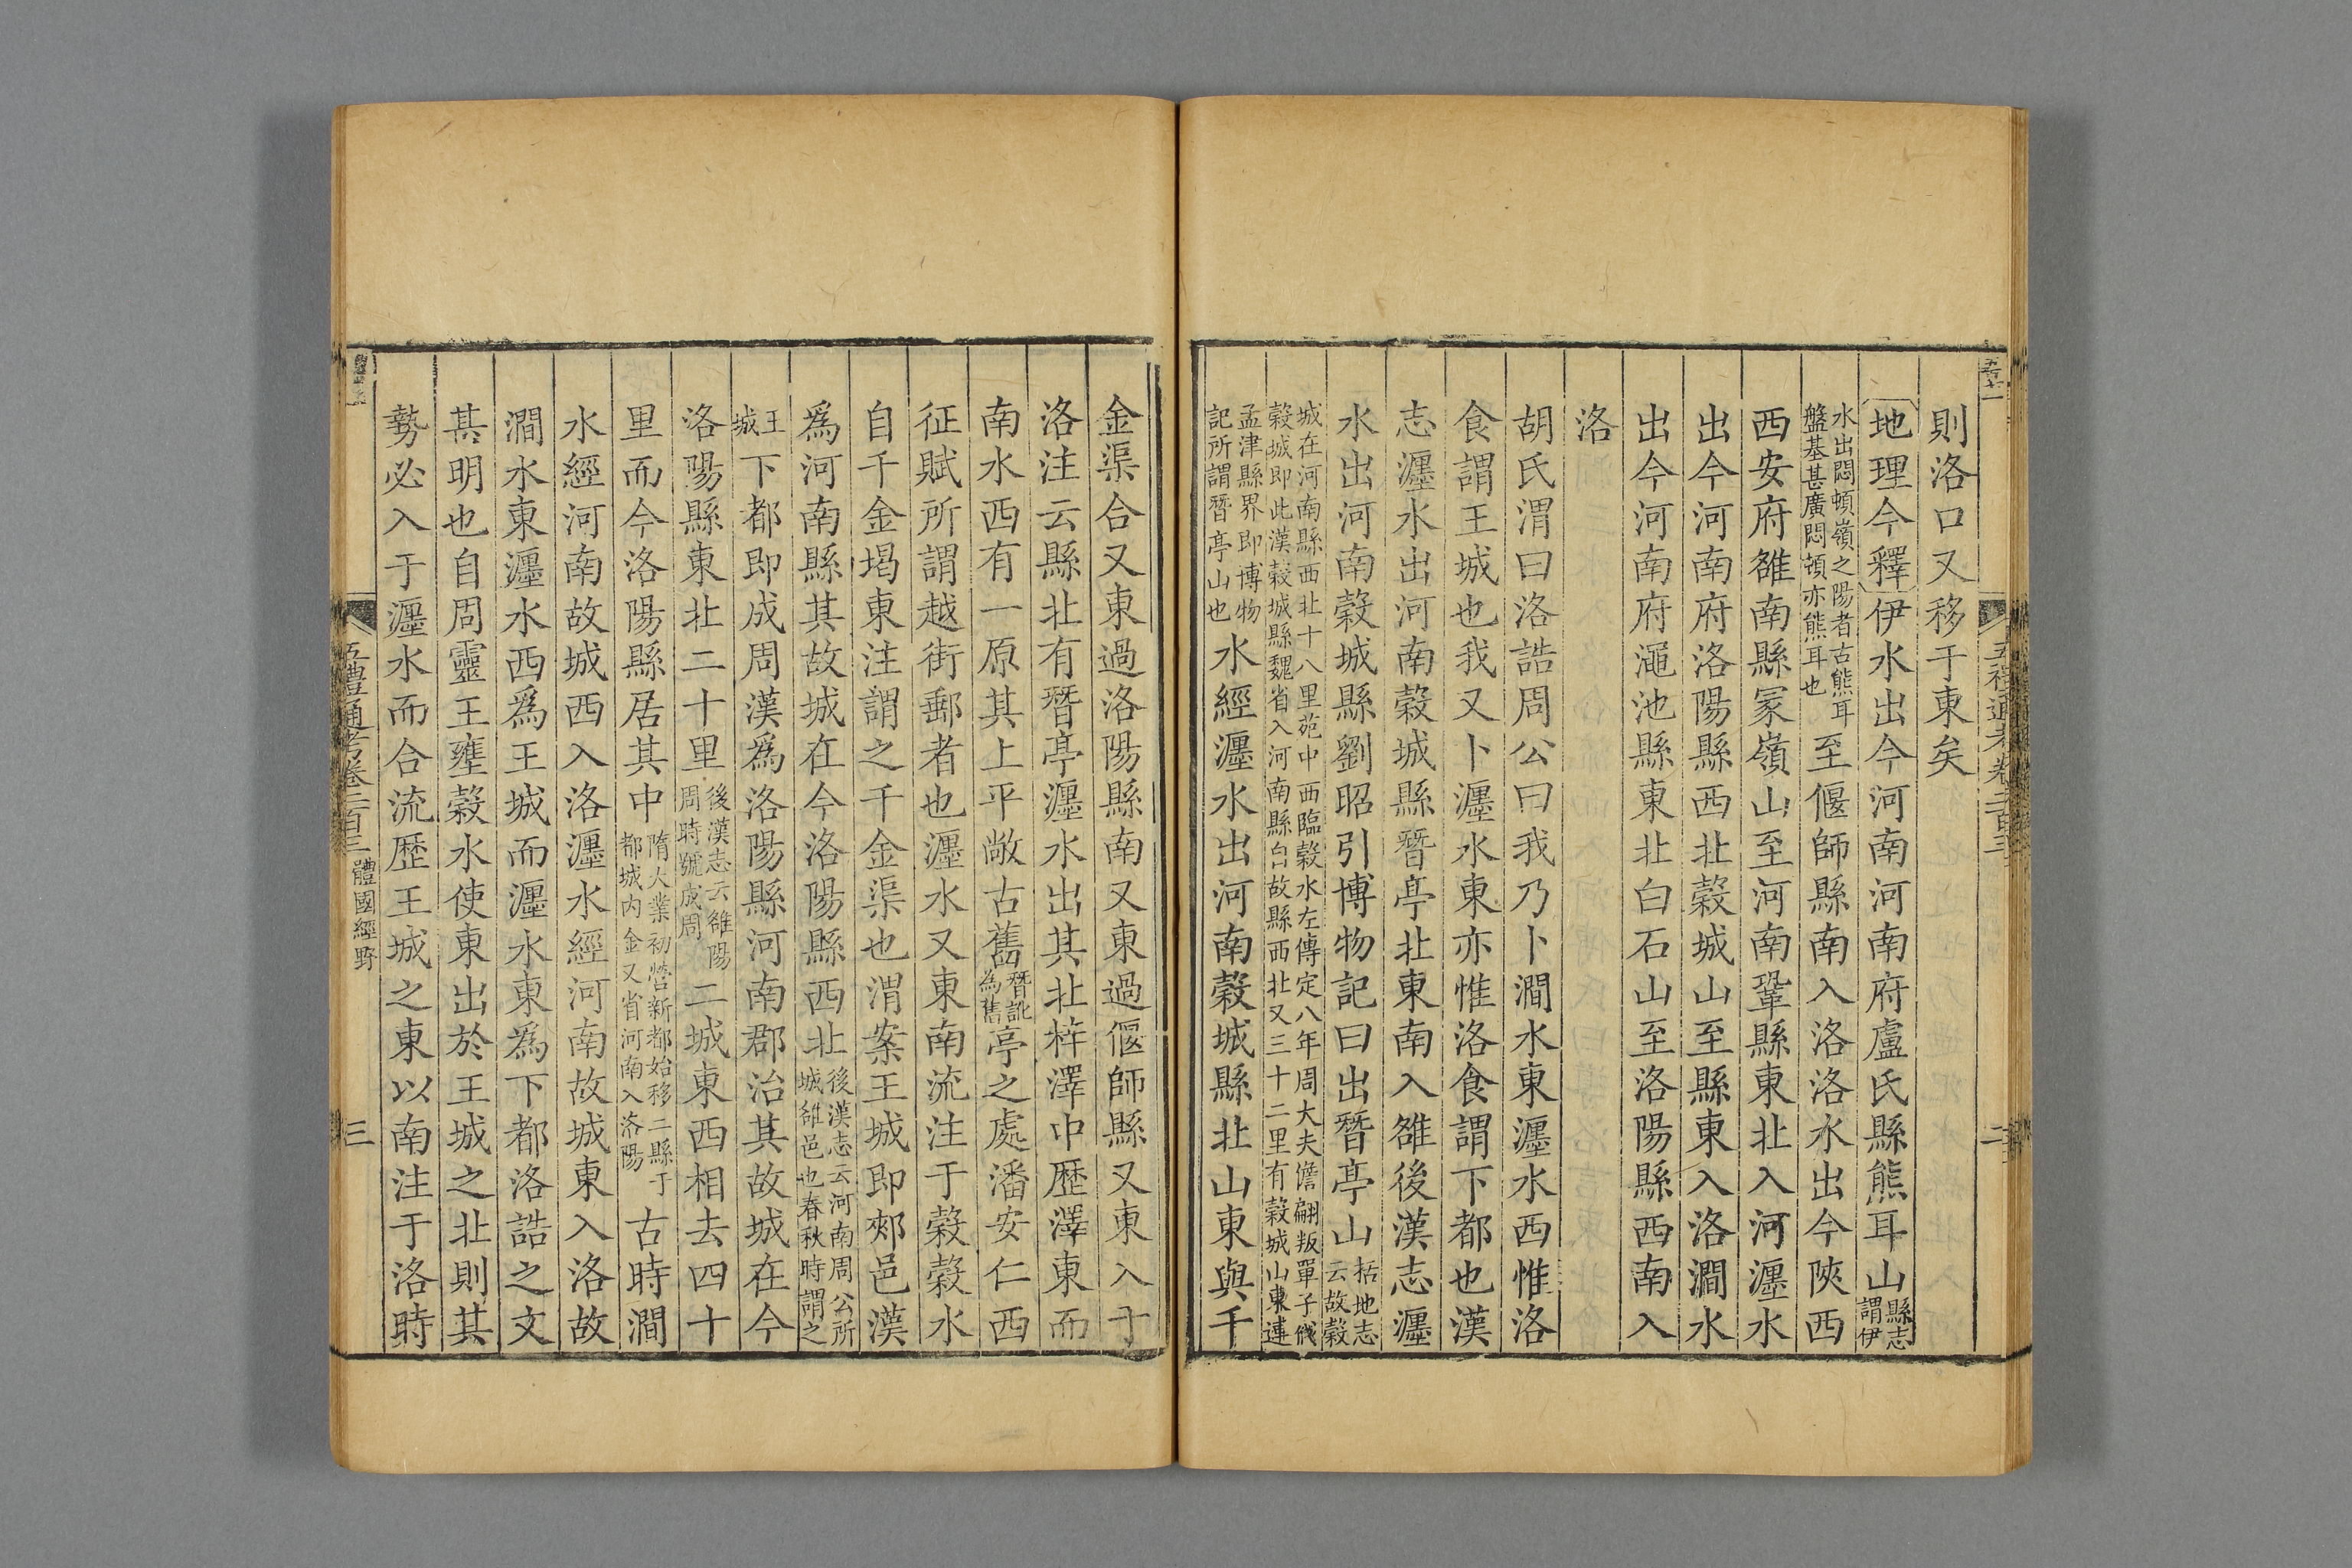 則洛口又移于東矣
地理今釋伊水出今河南河南府盧氏縣熊耳山縣志謂伊
水出悶頓嶺之陽者古熊耳盤基甚廣悶頓亦熊耳也至偃師縣南入洛洛水出今陝西
西安府雒南縣冢嶺山至河南鞏縣東北入河瀍水
出今河南府洛陽縣西北穀城山至縣東入洛澗水
出今河南府澠池縣東北白石山至洛陽縣西南入
洛
胡氏渭曰洛誥周公曰我乃卜澗水東瀍水西惟洛
食謂王城也我又卜瀍水東亦惟洛食謂下都也漢
志瀍水出河南穀城縣朁亭北東南入雒後漢志瀍
水出河南穀城縣劉昭引博物記曰出朁亭山括地志云故穀
城在河南縣西北十八里苑中西臨穀水左傳定八年周大夫儋翩叛單子伐穀城即此漢穀城縣魏省入河南縣白故縣西北又三十二里有穀城山東連
孟津縣界即博物記所謂朁亭山也水經瀍水出河南穀城縣北山東與千
金渠合又東過洛陽縣南又東過偃師縣又東入于
洛注云縣北有朁亭瀍水出其北梓澤中歷澤東而
南水西有一原其上平敞古舊朁訛為舊亭之處潘安仁西
征賦所謂越街郵者也瀍水又東南流注于穀穀水
自千金堨東注謂之千金渠也渭案王城即郟邑漢
爲河南縣其故城在今洛陽縣西北後漢志云河南周公所城雒邑也春秋時謂之
王城下都即成周漢爲洛陽縣河南郡治其故城在今
洛陽縣東北二十里後漢志云雒陽周時號成周二城東西相去四十
里而今洛陽縣居其中隋大業初營新都始移二縣于都城內金又省河南入洛陽古時澗
水經河南故城西入洛瀍水經河南故城東入洛故
澗水東瀍水西爲王城而瀍水東爲下都洛誥之文
其明也自周靈王壅穀水使東出於王城之北則其
勢必入于瀍水而合流歷王城之東以南注于洛時
五禮通考卷二百三 體國經野 三